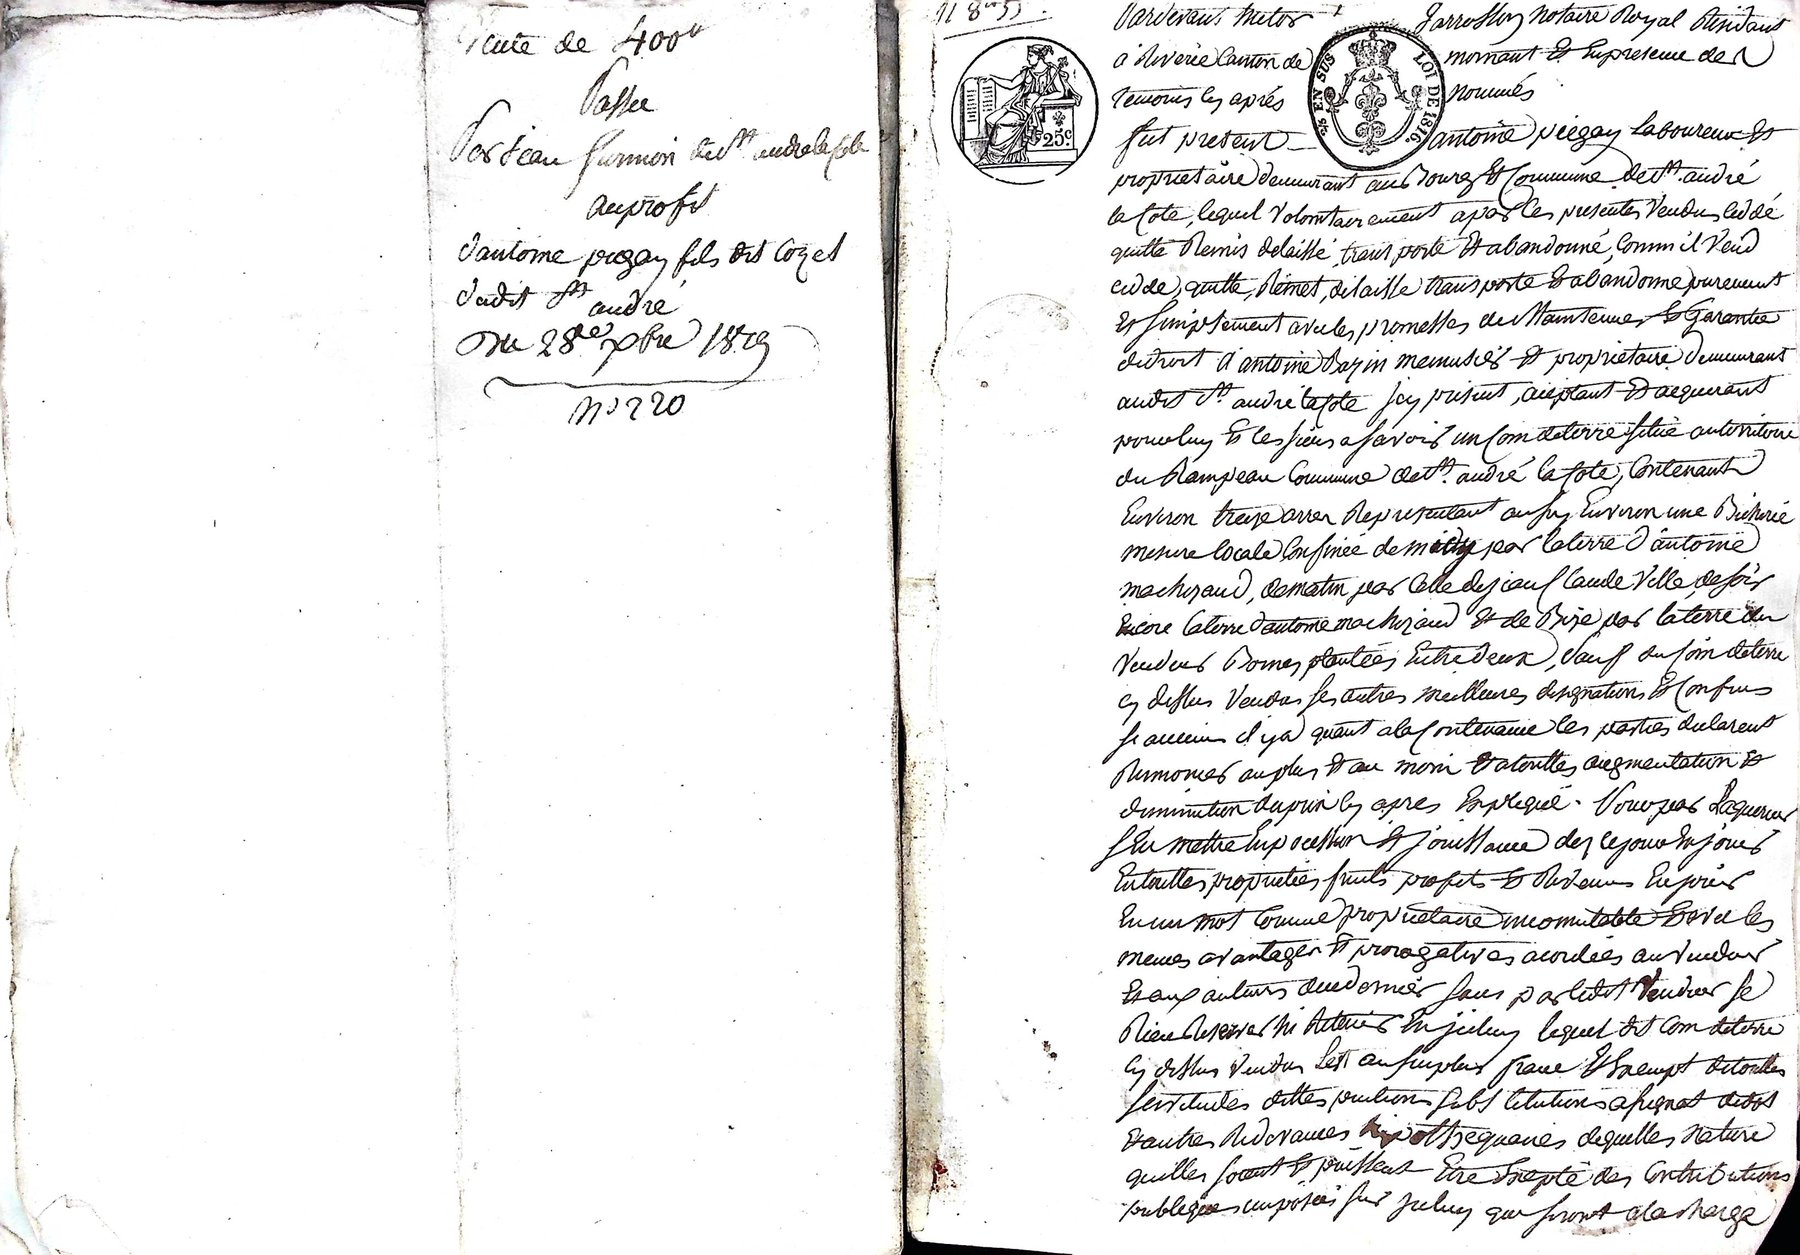 Vente de 400#
Passée
Par Jean furnion de St. andré la Cote
au profit
d'antoine piegay fils dit Cozet
dudit St andré
Du 28e xbre 1819
No 220
Pardevant jarrosson Notaire Royal Résidant
à Riverie Canton de mornant Et En presence des
temoins cy après nommés
fut présent antoine piegay Laboureur Et
proprietaire demeurant au Bourg Et Commune de St. andré
la Cote, lequel Volontairement a par les presentes Vendu, cédé
quitté Remis delaissé, transporté Et abandonné, Comm'il Vend
cède, quitte, Remet, delaisse transporte Et abandonne purement
Et simplement avec les promesses de Maintenue Et Garantie
de droit à antoine Bazin menusier Et proprietaire demeurant
audit St. andré la Cote icy présent, acceptant Et acquerant
pour luy Et les siens a savoir un Coin de terre située au territoire
du Rampeau Commune de St. andré la Cote, Contenant
Environ treize arres Representant aussy Environ une Bicherée
mesure locale Confinée de midy par la terre d'antoine
machizaud, de matin par Celle de jean Claude Ville, de soir
Encore la terre d'antoine machizaud Et de Bize par la terre du
Vendeur Bornes plantées Entre deux, Sauf du Coin de terre
cy dessus Vendu ses autres meilleures designations Et Confins
si aucuns il y a quant a la Contenance les parties declarent
Renoncer au plus Et au moin Et a touttes augmentation Et
diminution du prix cy apres Expliqué. Pour par L'aquereur
s'En mettre En pocession Et jouissance dez ce jour En jouir
En touttes proprietés fruits profits Et Revenus En jouir
En un mot Comme proprietaire incomutable Et avec les
memes avantages Et prorogatives acordées au Vendeur
Et aux auteurs de ce dernier sans par ledit Vendeur se
Rien Reserver ni Retenir En iceluy lequel dit Coin de terre
cy dessus Vendu Est au surplus franc Et Exempt de touttes
servitudes dettes pentions substitutions assignat de dot
Et autres Redevances hypothequaires de quelles Nature
quelles soient Et puissent Etre Excepté des Contributions
publiques imposées sur iceluy qui seront a la charge
EN SUS LOI DE 1816.
25c.